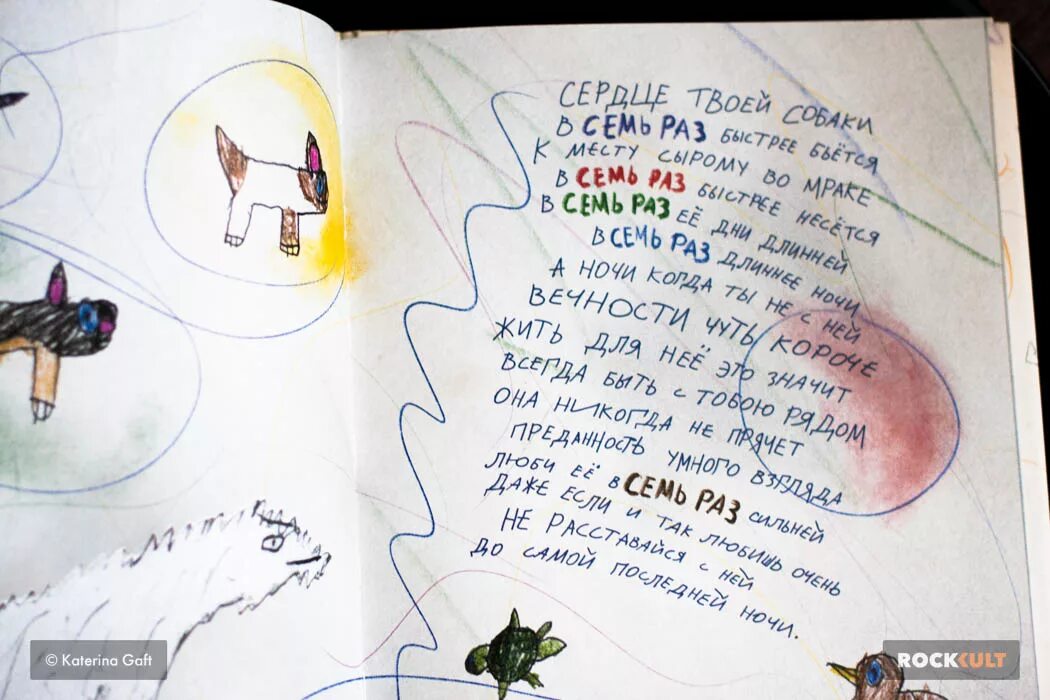 СЕРДЦЕ ТВОЕЙ СОБАКИ
В СЕМЬ РАЗ БЫСТРЕЕ БЬЁТСЯ
К МЕСТУ СЫРОМУ ВО МРАКЕ
В СЕМЬ РАЗ БЫСТРЕЕ НЕСЁТСЯ
В СЕМЬ РАЗ ЕЁ ДНИ ДЛИННЕЙ
В СЕМЬ РАЗ ДЛИННЕЕ НОЧИ
А НОЧИ КОГДА ТЫ НЕ С НЕЙ
ВЕЧНОСТИ ЧУТЬ КОРОЧЕ
ЖИТЬ ДЛЯ НЕЁ ЭТО ЗНАЧИТ
ВСЕГДА БЫТЬ С ТОБОЮ РЯДОМ
ОНА НИКОГДА НЕ ПРЯЧЕТ
ПРЕДАННОСТЬ УМНОГО ВЗГЛЯДА
ЛЮБИ ЕЁ В СЕМЬ РАЗ СИЛЬНЕЙ
ДАЖЕ ЕСЛИ И ТАК ЛЮБИШЬ ОЧЕНЬ
НЕ РАССТАВАЙСЯ С НЕЙ
ДО САМОЙ ПОСЛЕДНЕЙ НОЧИ.
© Katerina Gaft
ROCKCULT